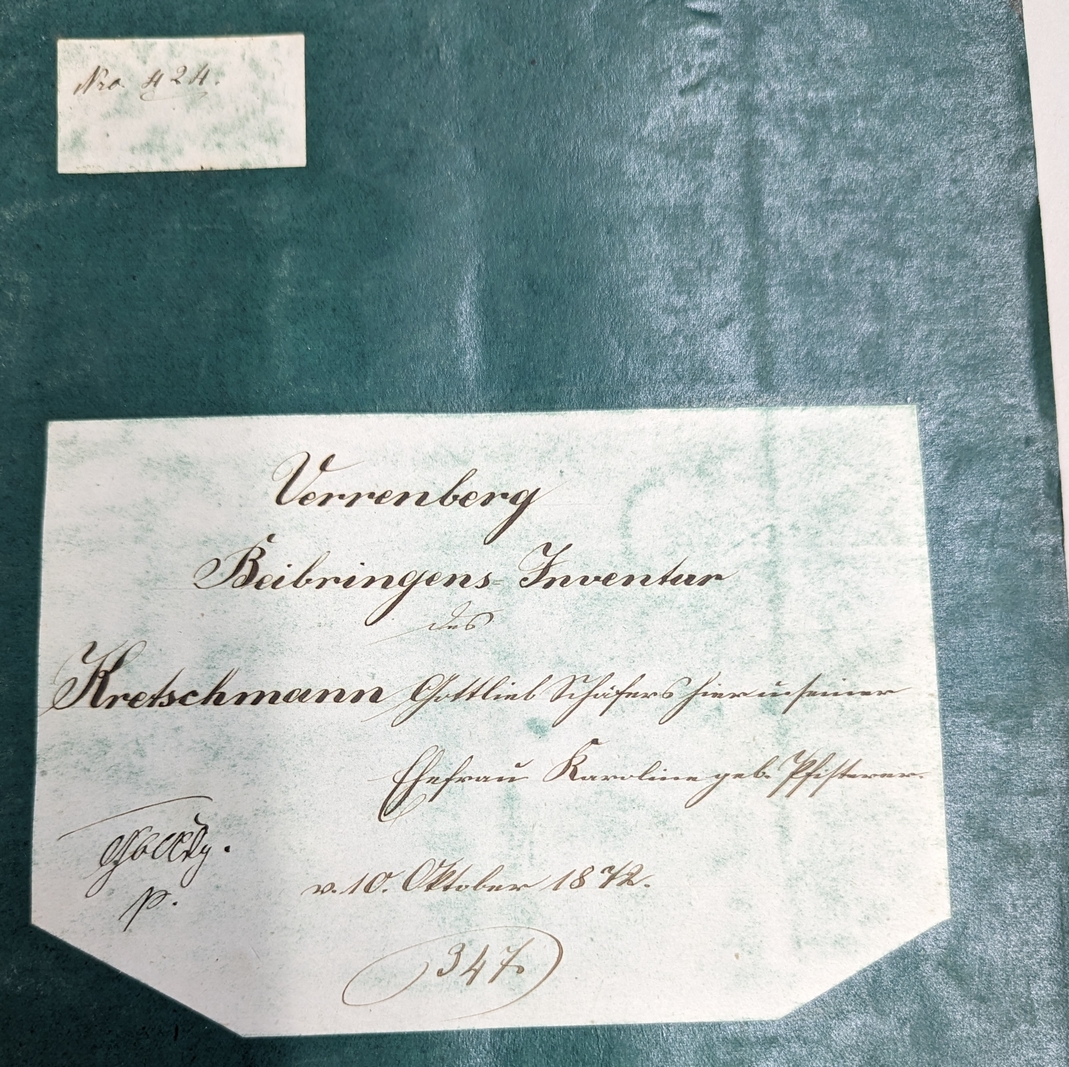 Nro. 424.
Verrenberg
Beibringens-Inventar
des
Kretschmann Gottlieb Schäfers hier u. seiner
Ehefrau Karoline geb. Pfisterer.
v. 10. Oktober 1872.
347.